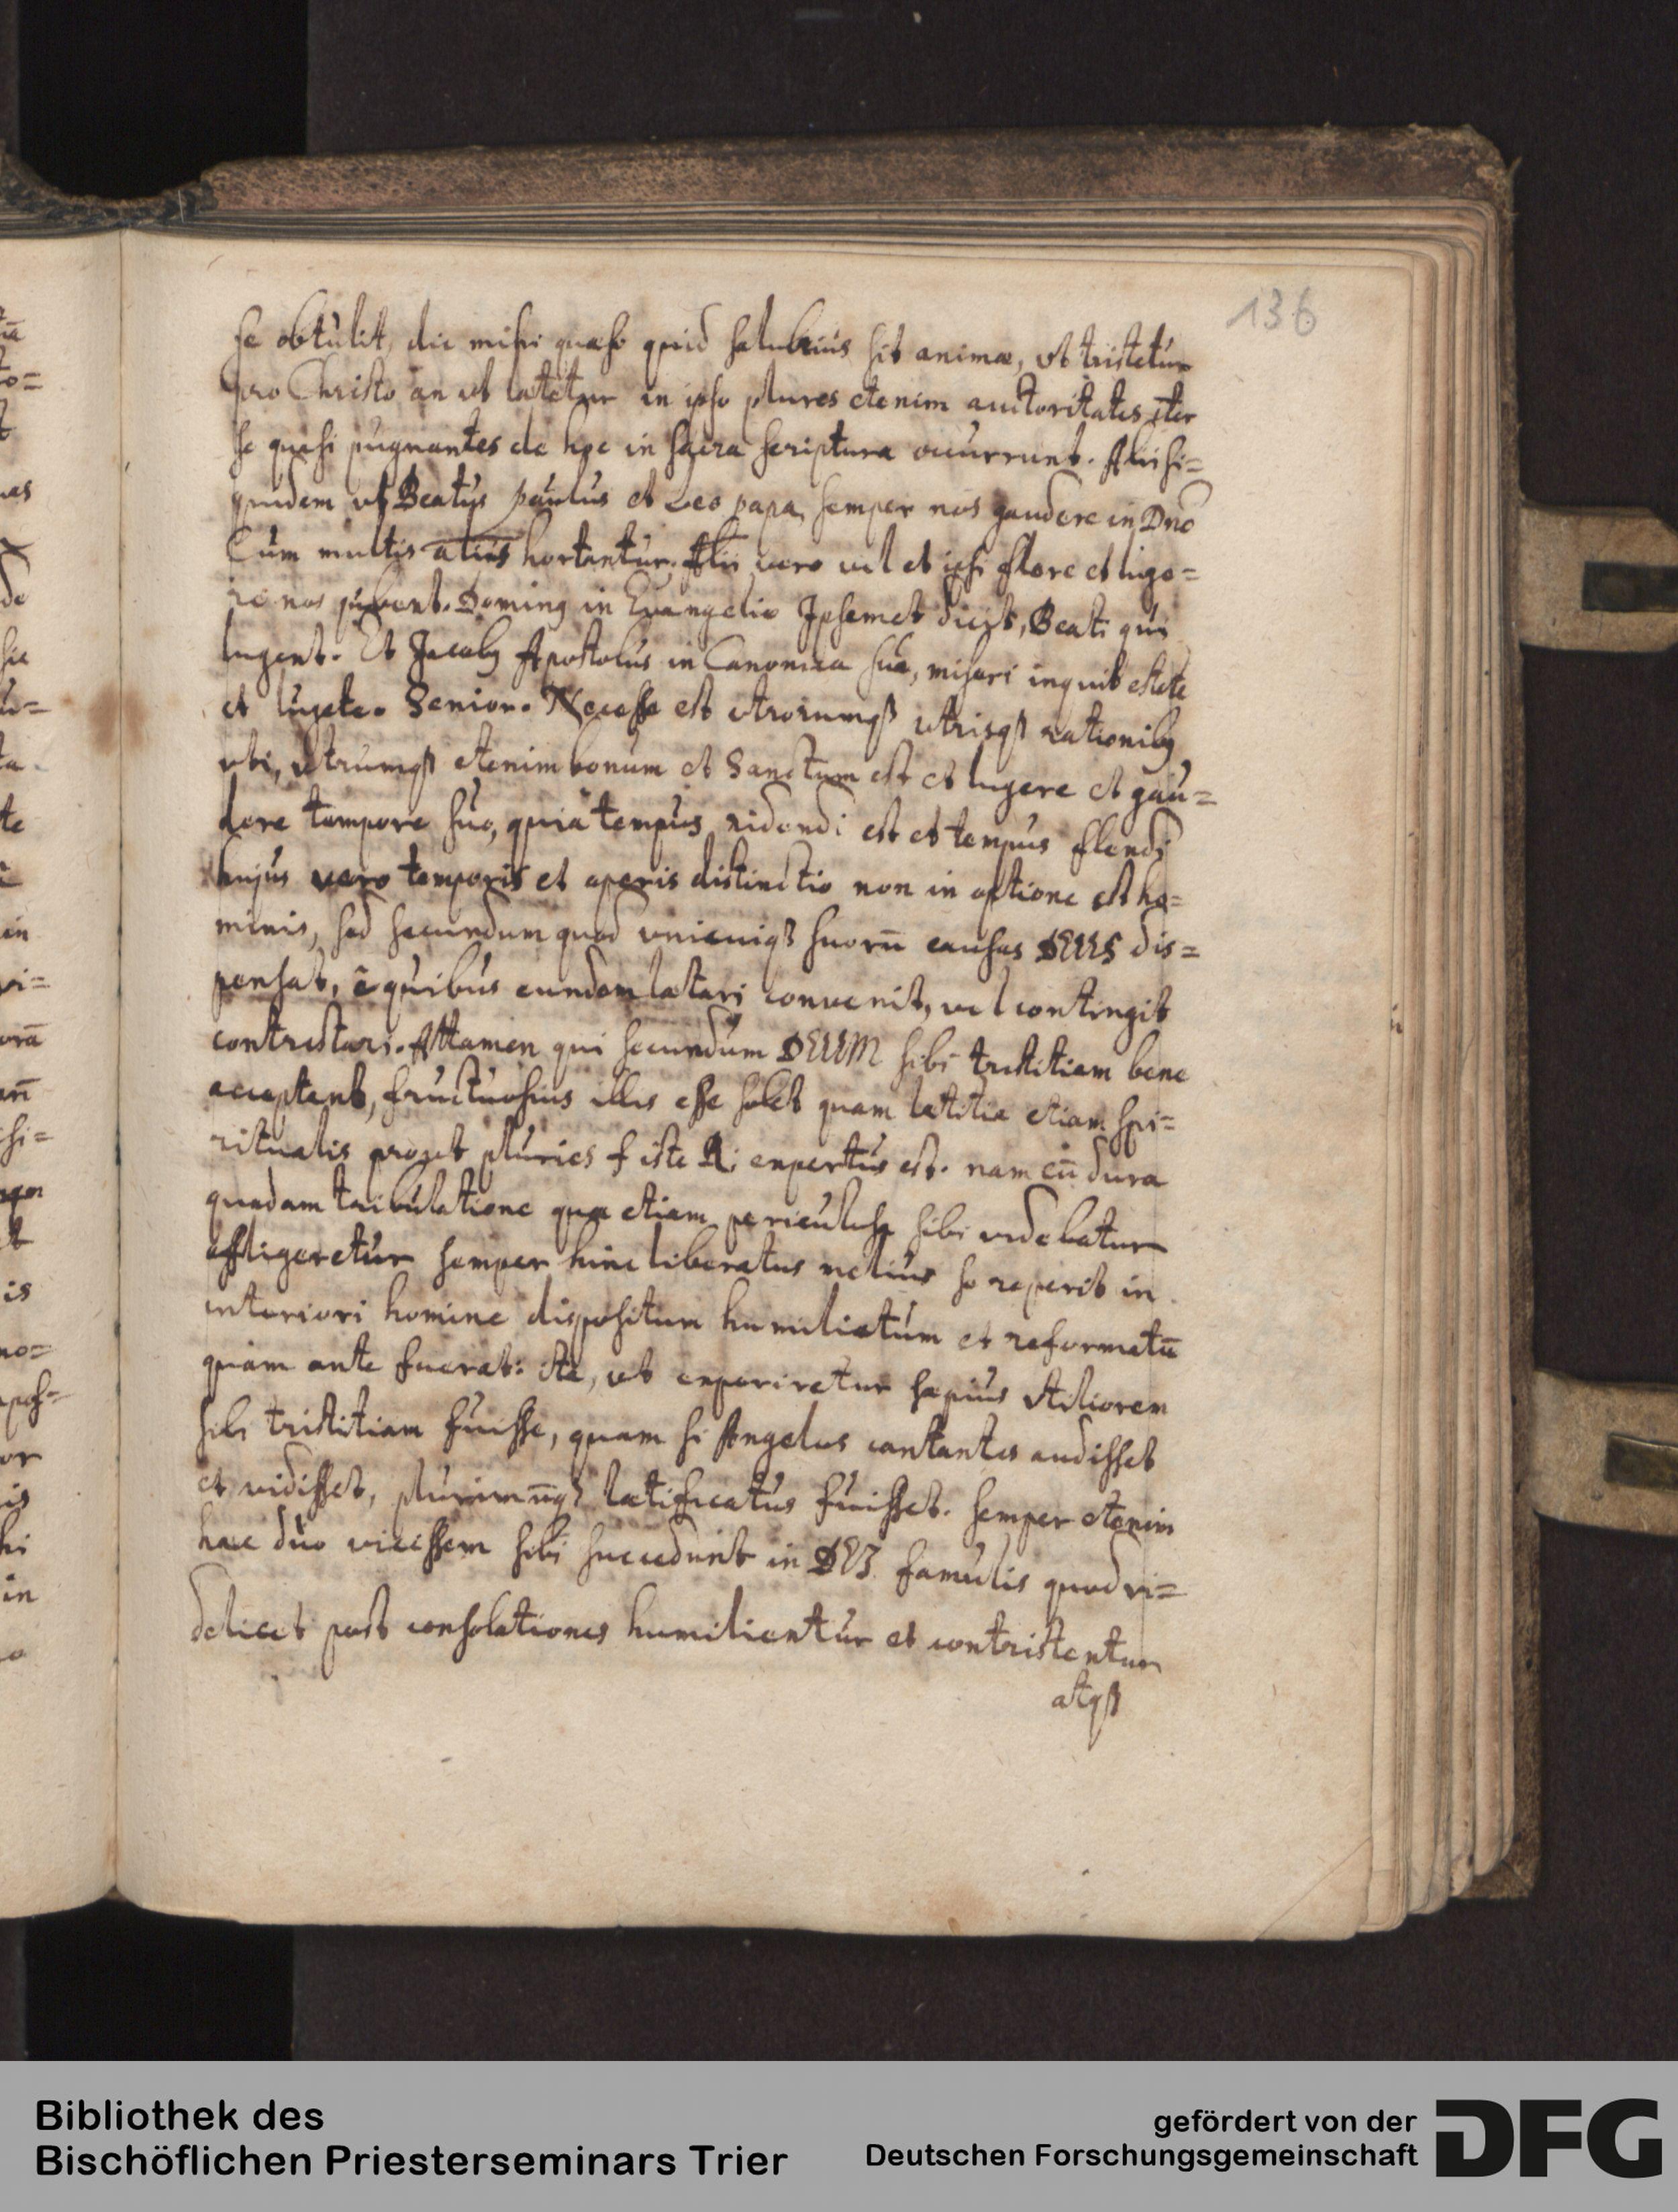 136
se obtulit, dic mihi quæso quid salubrius sit animæ, vt tristetur
pro Christo an vt lætetur in ipso plures etenim auctoritates iter
se quasi pugnantes de hoc in sacra scriptura occurrunt. Alii si=
quidem vt Beatus paulus et Leo papa, semper nos gaudere in Dno
Cum multis aliis hortantur. Alii vero vel et ipsi flere et luge=
re nos jubent. Dominꝰ in Euangelio Ipsemet dicit, Beati qui
lugent. Et Jacobꝰ Apostolus in Canonica sua, miseri inquit estote
et lugete. Senior. Necesse est vtrorumqꝫ vtrisqꝫ rationibꝰ
vti, vtrumqꝫ etenim bonum et Sanctum est et lugere et gau=
dere tempore suo, quia tempus ridendi est et tempus flendi
hujus vero temporis et operis distinctio non in optione est ho=
minis, sed secundum quod vnicuiqꝫ suorū causas DEUS dis=
pensat, è quibus eundem lætari convenit, vel contingit
contristari. Attamen qui secundum DEUM sibi tristitiam bene
acceptent, fructuosius illis esse solet quam lætitia etiam spi=
ritualis prout pluries f iste R: expertus est. nam cū dura
quadam tribulatione quæ etiam periculosa sibi videbatur
affligeretur semper hinc liberatus melius se reperit in
interiori homine dispositum humiliatum et reformatū
quam ante fuerat: ita, vt experiretur sæpius vtiliorem
sibi tristitiam fuisse, quam si Angelos cantantes audisset
et vidisset, plurimūqꝫ lætificatus fuisset. semper etenim
hæc duo vicissem sibi succedunt in DEI famulis quod vi=
delicet post consolationes humilientur et contristentur
atqꝫ
Bibliothek des
Bischöflichen Priesterseminars Trier
gefördert von der
Deutschen Forschungsgemeinschaft
DFG